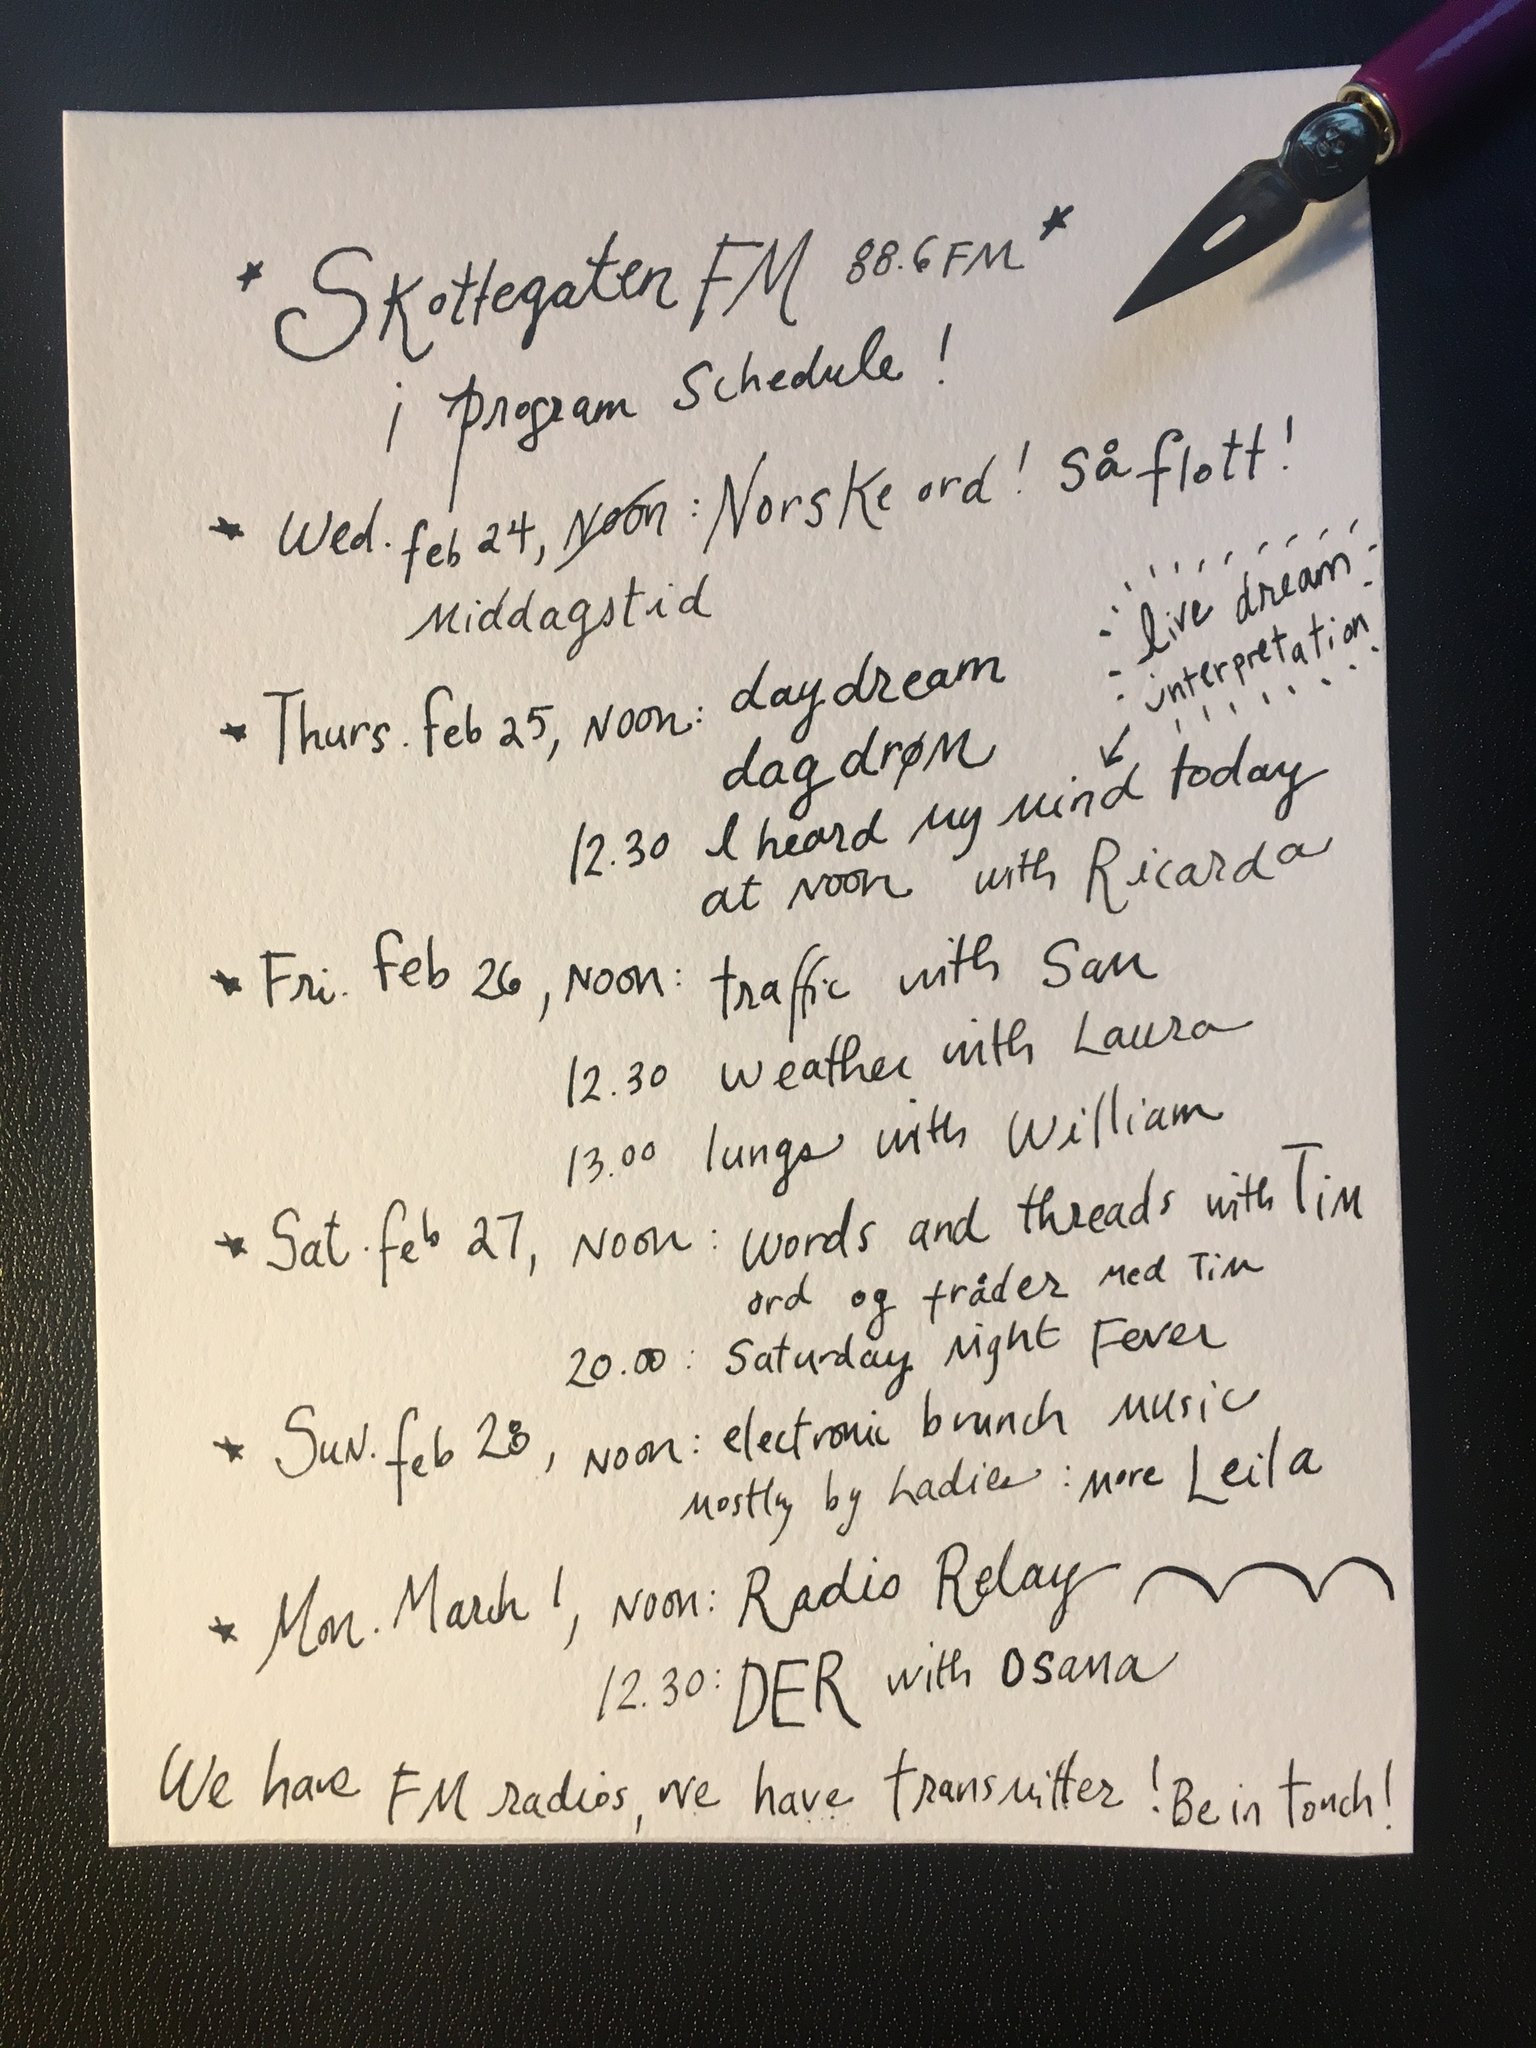 * Skottegaten FM 88.6 FM *
¡ program schedule !
* Wed. feb 24, Noon : Norske ord! Så flott!
Middagstid
* Thurs. feb 25, NOON: daydream
dagdrøm
live dream
interpretation
12.30 I heard my mind today
at NOON with Ricarda
* Fri. feb 26, NOON: traffic with San
12.30 weather with Laura
13.00 lungs with William
* Sat. feb 27, NOON: words and threads with Tim
ord og tråder med Tim
20.00: Saturday night Fever
* Sun. feb 28, NOON: electronic brunch music
mostly by Ladies : more Leila
* Mon. March 1, NOON: Radio Relay
12.30: DER with Osana
We have FM radios, we have transmitter! Be in touch!